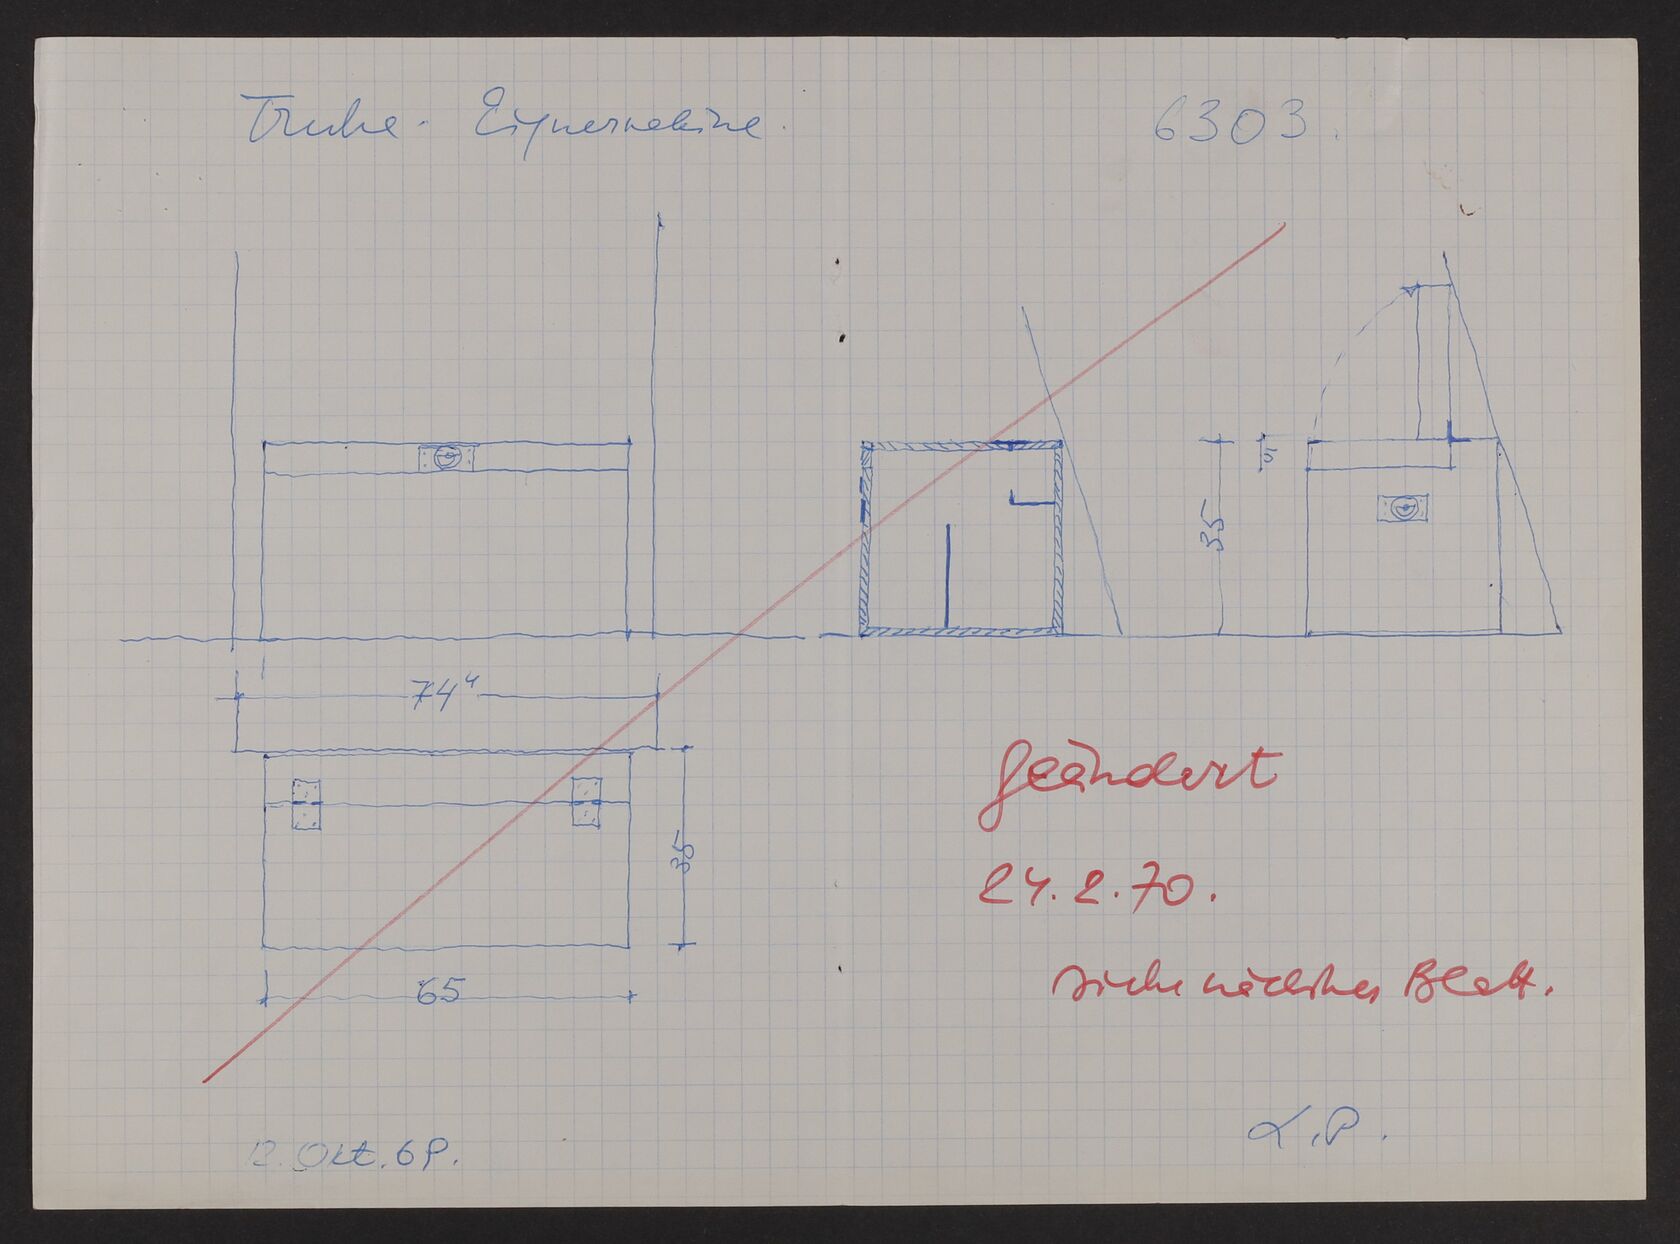 Truhe - Eignerkabine. 6303.
5
35
74⁴
35
65
geändert
24.2.70.
siehe nächstes Blatt.
12. Okt. 69.
L.P.